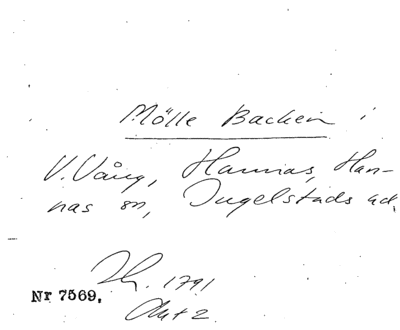 Mölle Backen i
V. Vång, Hannas, Han-
nas sn, Ingelstads hd.
1791
Nr 7569.
Akt 2